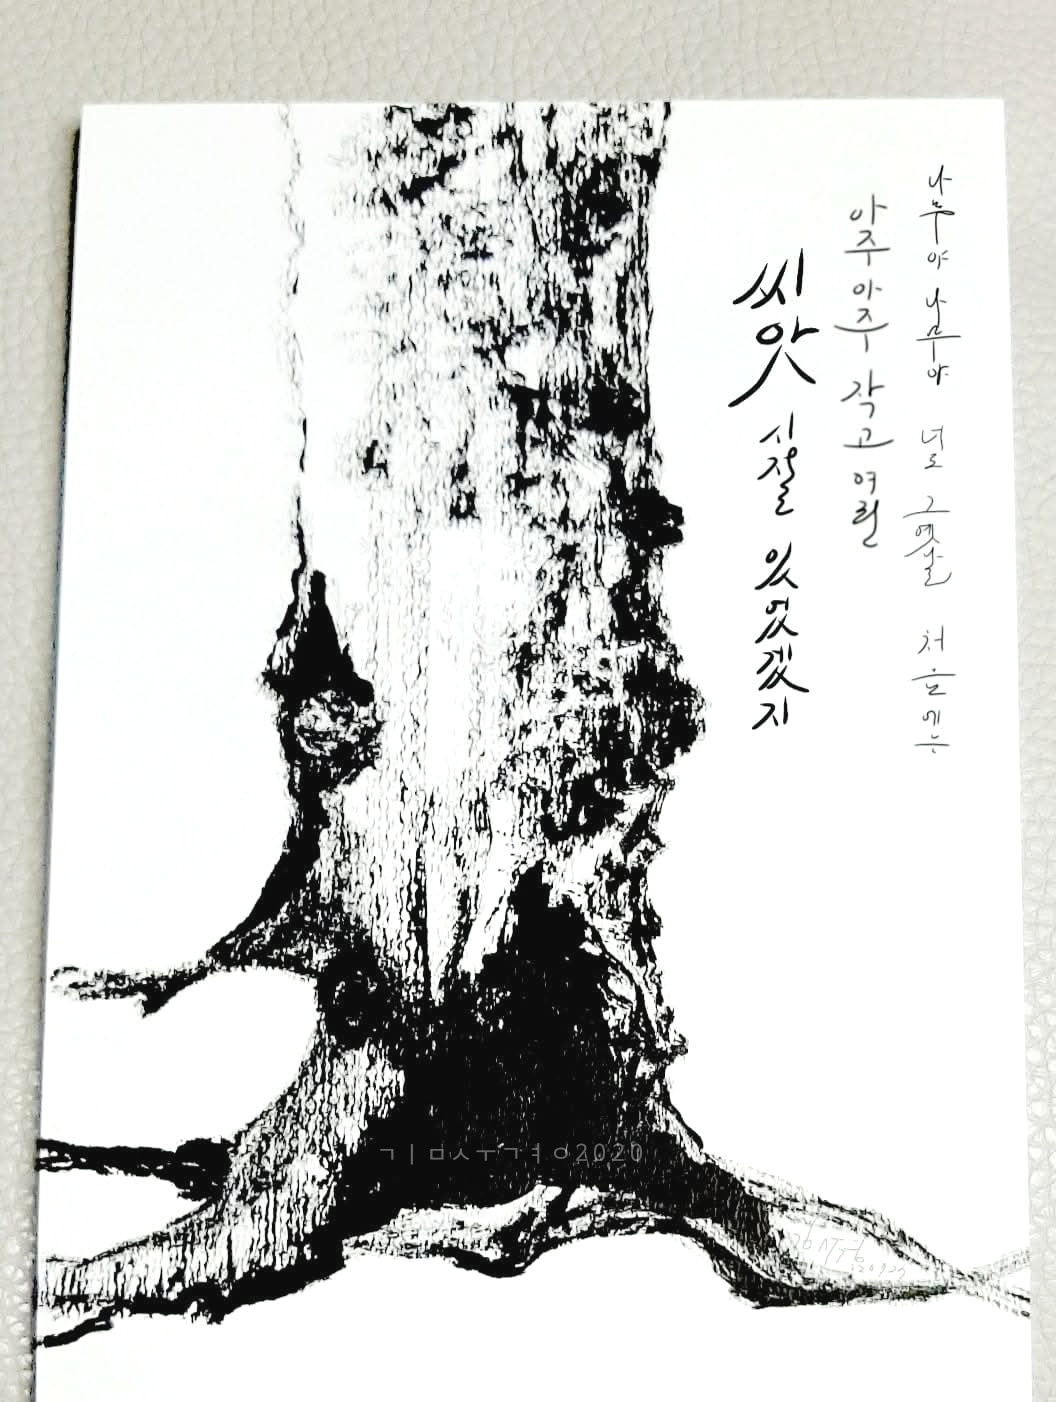 나무야 나무야 너도 그 옛날 처음에는
아주 아주 작고 여린
씨앗 시절 있었겠지
ㄱㅣㅁㅅㅜㄱ㕕ㅇ2020